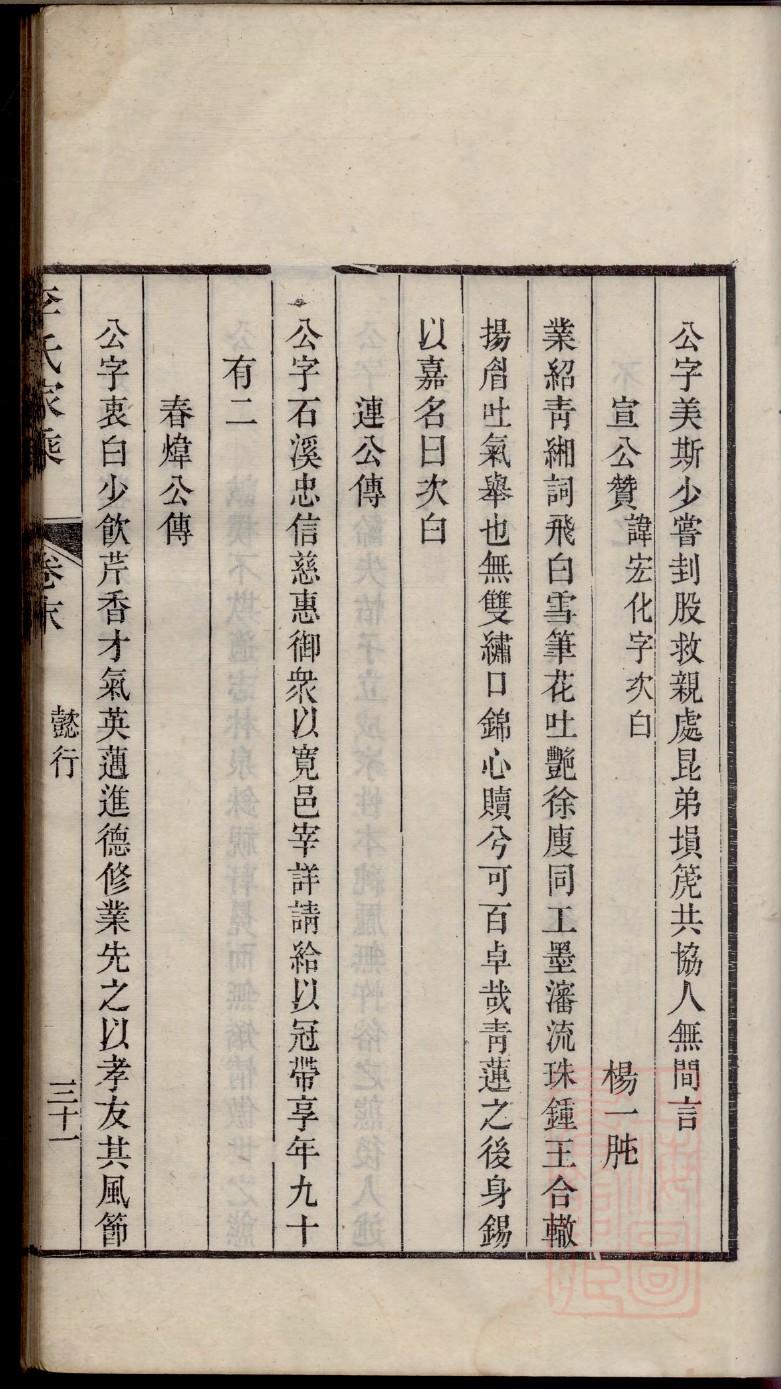 公字美斯少嘗刲股救親處昆弟塤箎共協人無間言
宣公贊 諱宏化字次白 楊一肫
業紹靑緗詞飛白雪筆花吐艷徐庾同工墨瀋流珠鍾王合轍
揚眉吐氣舉也無雙繡口錦心贖兮可百卓哉靑蓮之後身錫
以嘉名曰次白
連公傳
公字石溪忠信慈惠御衆以寬邑宰詳請給以冠帶享年九十
有二
春煒公傳
公字衷白少飮芹香才氣英邁進德修業先之以孝友其風節
李氏家乘 卷末 懿行 三十一